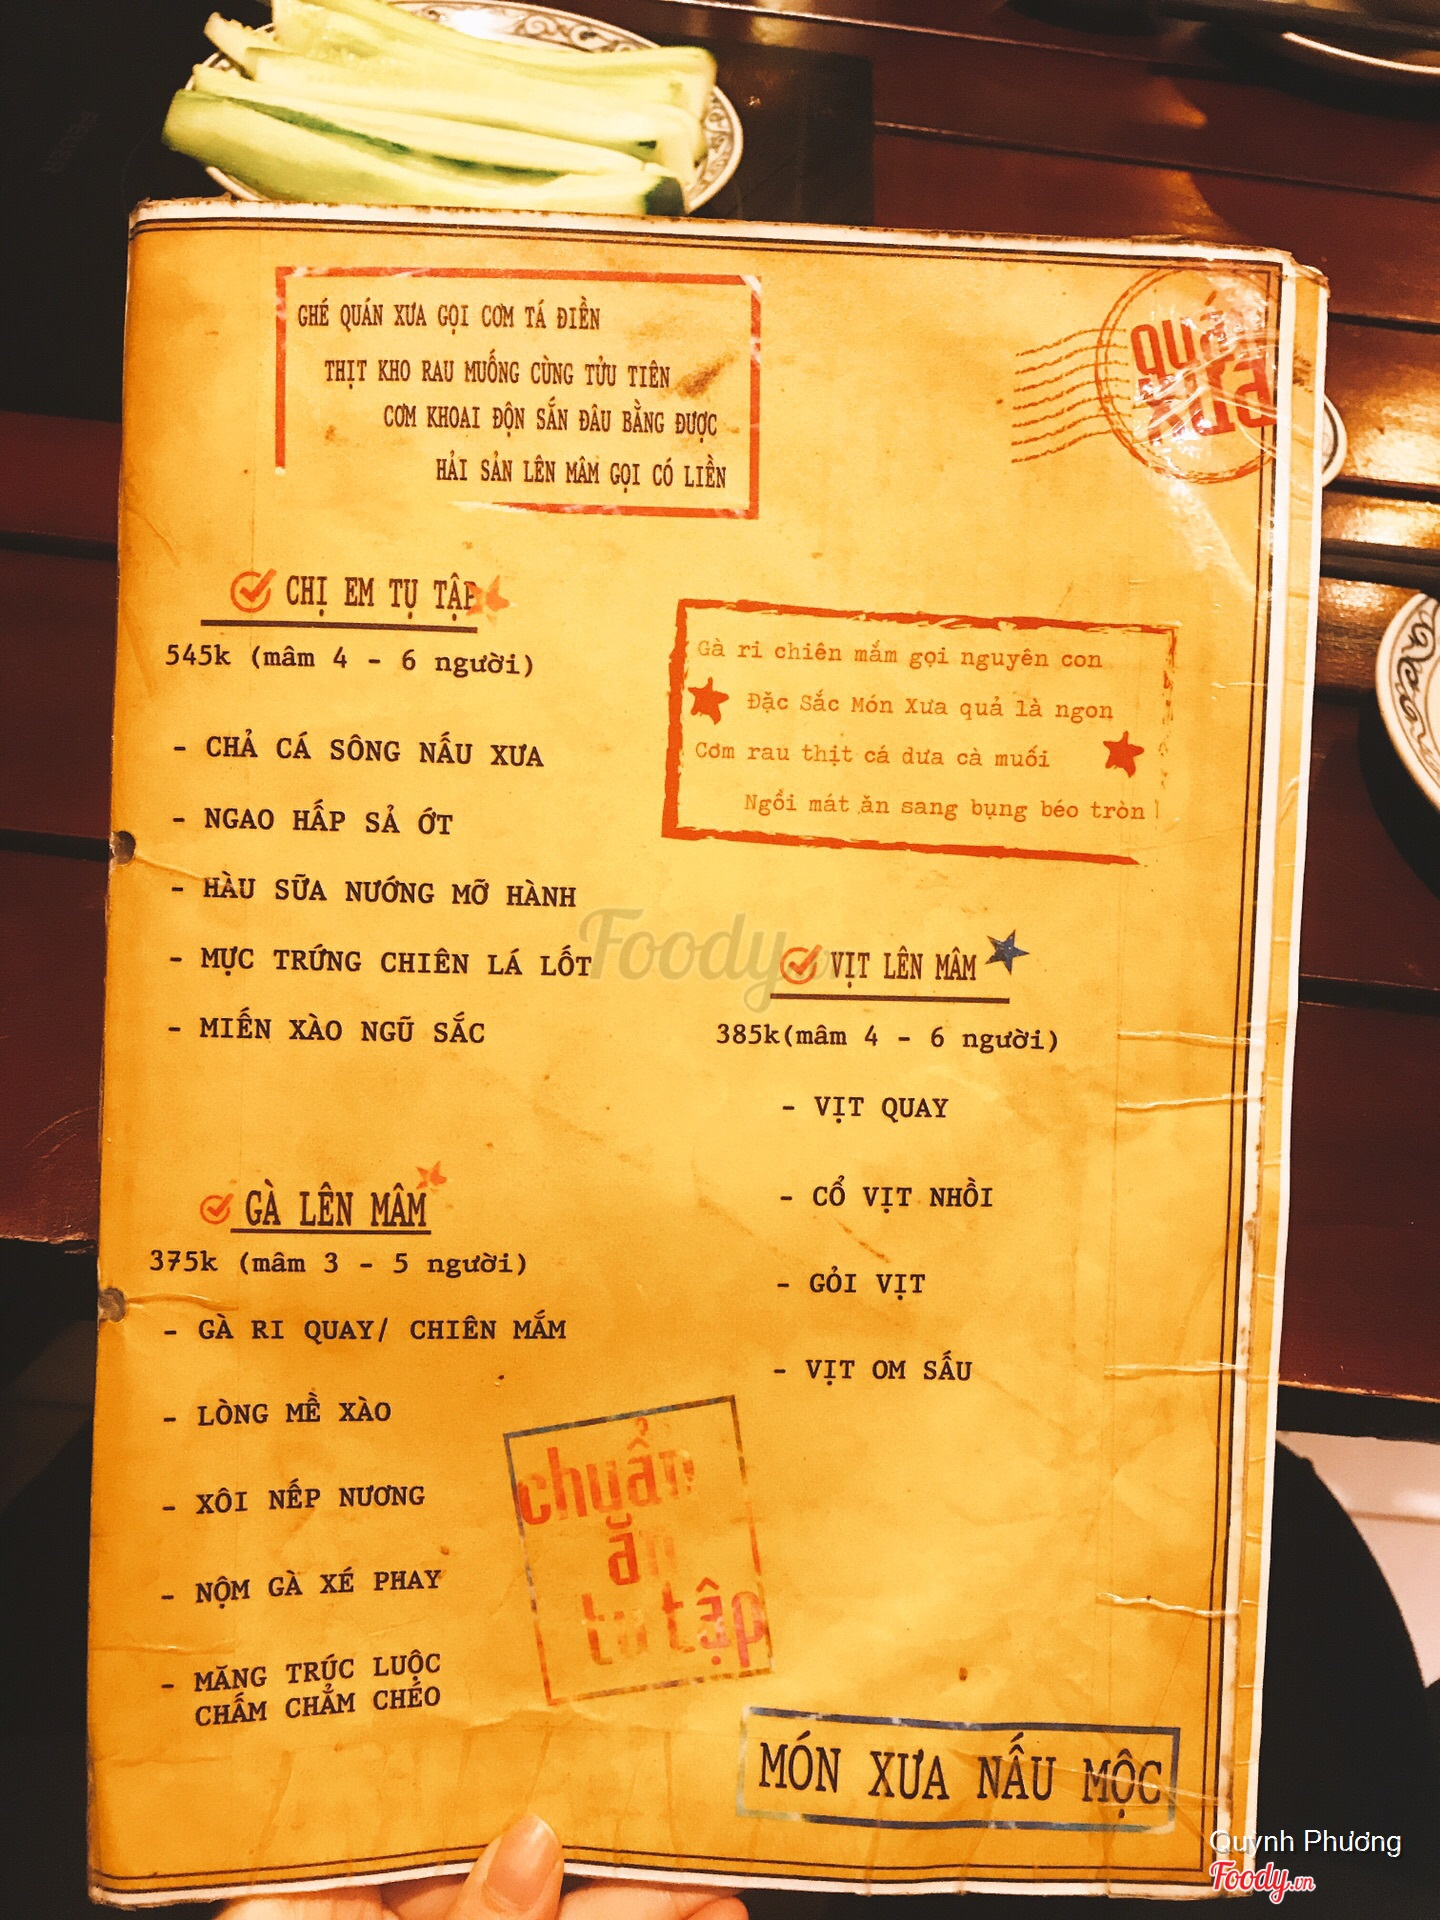 GHÉ QUÁN XƯA GỌI CƠM TÁ ĐIỀN
THỊT KHO RAU MUỐNG CÙNG TỬU TIÊN
CƠM KHOAI ĐỘN SẮN ĐÂU BẰNG ĐƯỢC
HẢI SẢN LÊN MÂM GỌI CÓ LIỀN
quán
xưa
CHỊ EM TỤ TẬP
545k (mâm 4 - 6 người)
- CHẢ CÁ SÔNG NẤU XƯA
- NGAO HẤP SẢ ỚT
- HÀU SỮA NƯỚNG MỠ HÀNH
- MỰC TRỨNG CHIÊN LÁ LỐT
- MIẾN XÀO NGŨ SẮC
GÀ LÊN MÂM
375k (mâm 3 - 5 người)
- GÀ RI QUAY/ CHIÊN MẮM
- LÒNG MỀ XÀO
- XÔI NẾP NƯƠNG
- NỘM GÀ XÉ PHAY
- MĂNG TRÚC LUỘC
CHẤM CHẲM CHÉO
Gà ri chiên mắm gọi nguyên con
Đặc Sắc Món Xưa quả là ngon
Cơm rau thịt cá dưa cà muối
Ngồi mát ăn sang bụng béo tròn
Foody
VỊT LÊN MÂM
385k(mâm 4 - 6 người)
- VỊT QUAY
- CỔ VỊT NHỒI
- GỎI VỊT
- VỊT OM SẤU
chuẩn
ăn
tụ tập
MÓN XƯA NẤU MỘC
Quỳnh Phương
Foody.vn